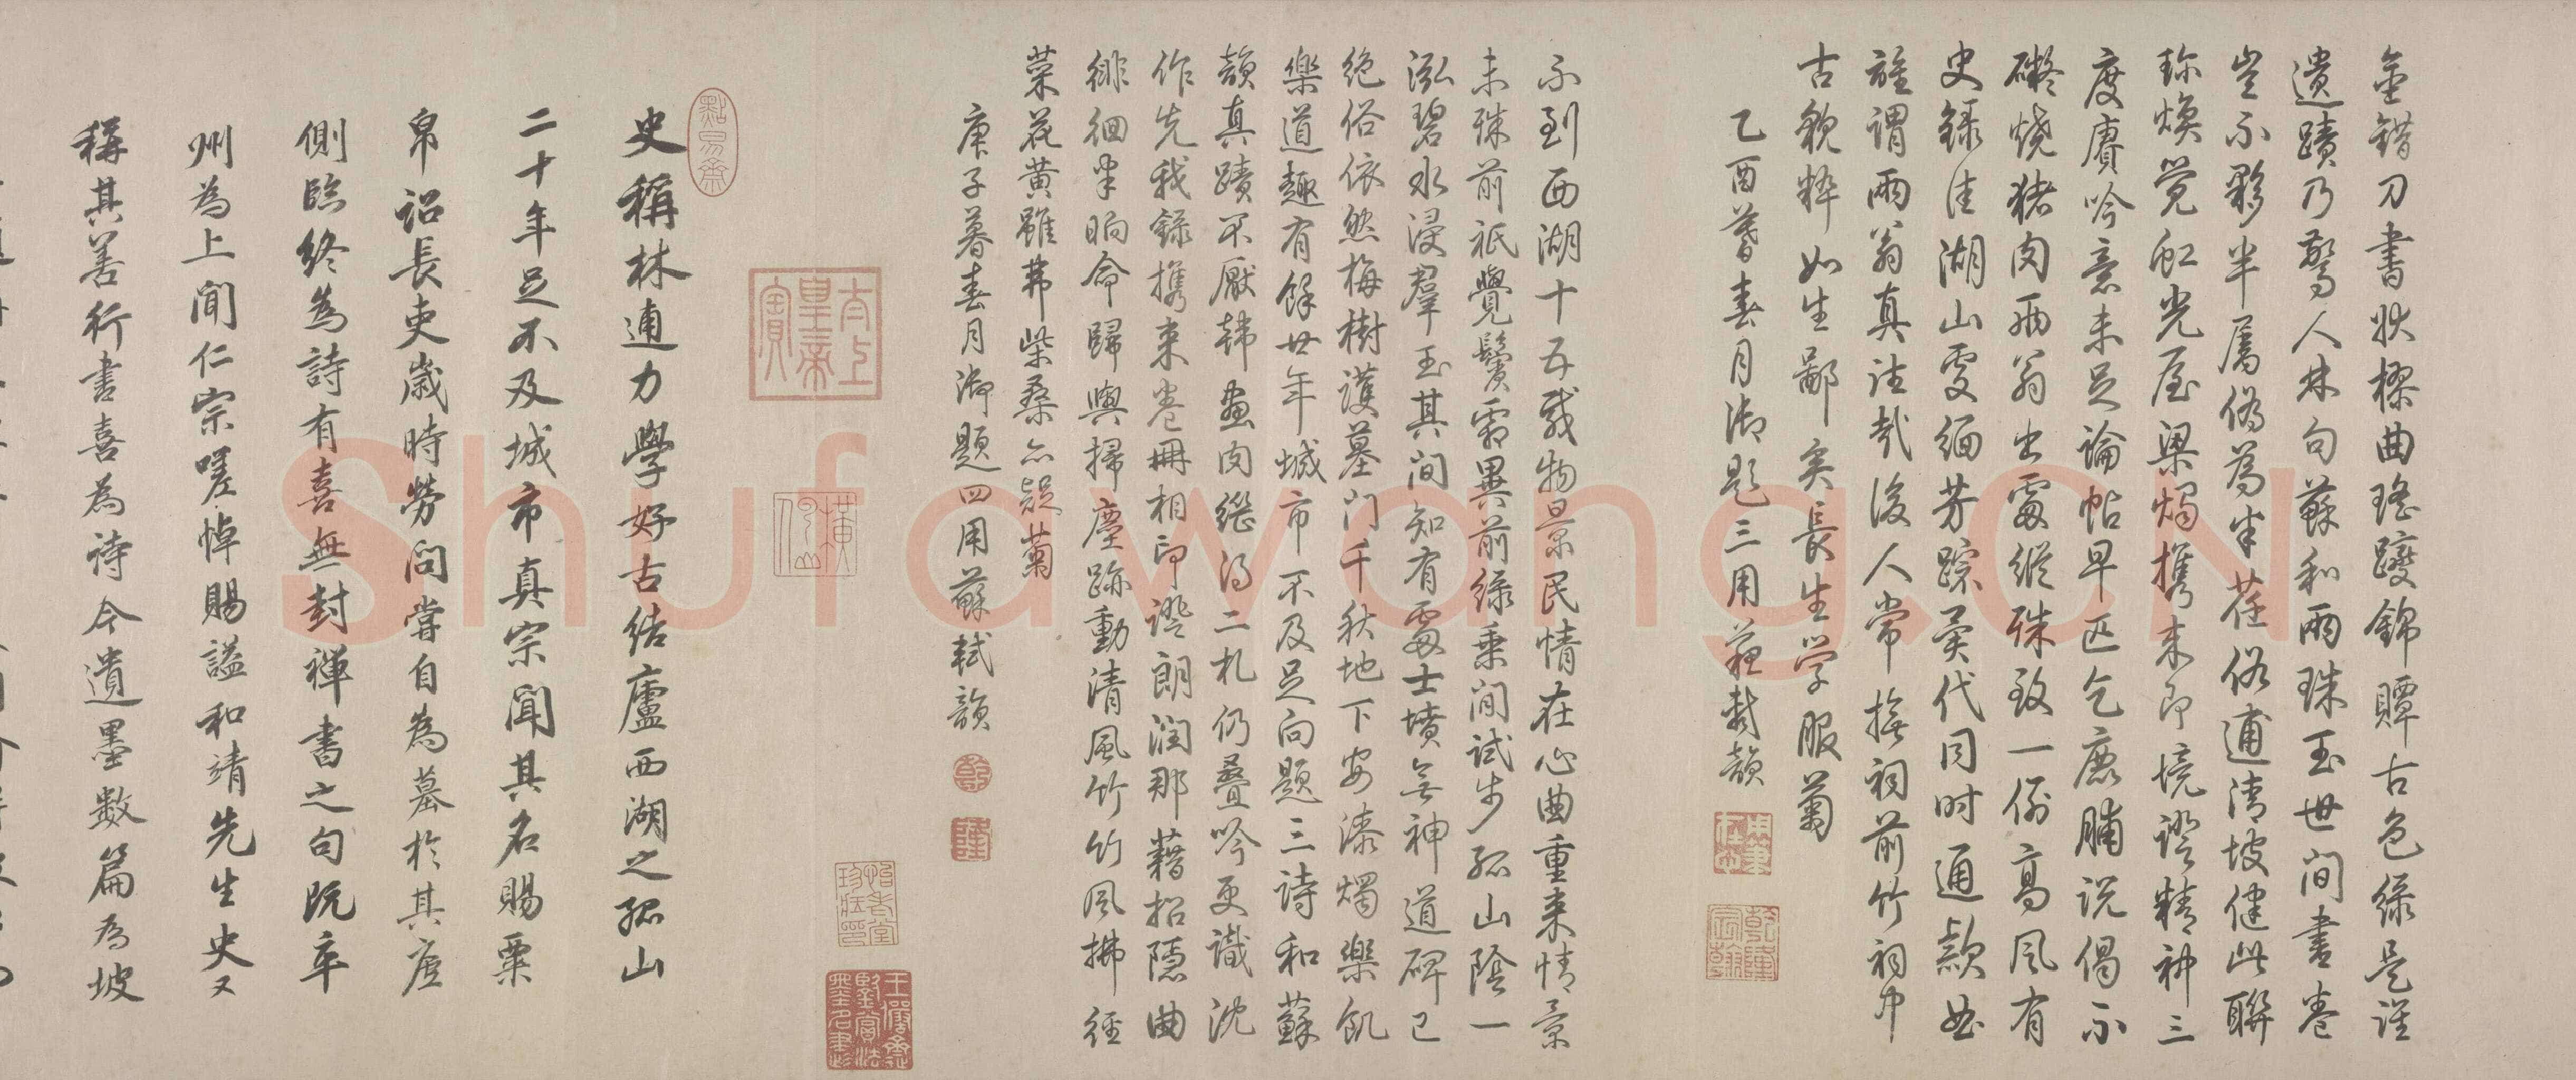 金錯刀書狀樛曲瑤躞錦贉古色綠是誰
遺蹟乃驚人林句蘇和兩珠玉世間書卷
豈不夥半屬偽為半荏俗逋清坡健此聯
珍煥覺虹光屋梁燭攜來即境證精神三
度賡吟意未足論帖早匹乞麃脯說偈不
礙燒豬肉兩翁出處縱殊致一例高風有
史錄佳湖山處緬芳蹤異代同時通款曲
誰謂兩翁真往哉後人常撫祠前竹祠中
古貌粹如生鄙矣長生學服菊
乙酉暮春月御題三用蘇軾韻
不到西湖十五載物景民情在心曲重來情景
未殊前祇覺鬢霜異前綠乗閒試步孤山陰一
泓碧水浸羣玉其間知有處士墳無神道碑已
絕俗依然梅樹護墓門千秋地下安漆燭樂飢
樂道趣有餘廿年城市不及足向題三詩和蘇
韻真蹟不厭韓畫肉繼得二札仍疊吟更識沈
作先我錄攜來卷冊相印證朗潤那藉招隱曲
徘徊半晌命歸輿掃塵跡動清風竹竹風拂徑
菜花黃雖弗柴桑亦疑菊
庚子暮春月御題四用蘇軾韻
乾
隆
太上皇帝之寶
史稱林逋力學好古結廬西湖之孤山
二十年足不及城市真宗聞其名賜粟
帛詔長吏歲時勞問嘗自為墓於其廬
側臨終為詩有喜無封禪書之句既卒
州為上聞仁宗嗟悼賜謚和靖先生史又
稱其善行書喜為詩今遺墨數篇為坡
Shufawang.CN